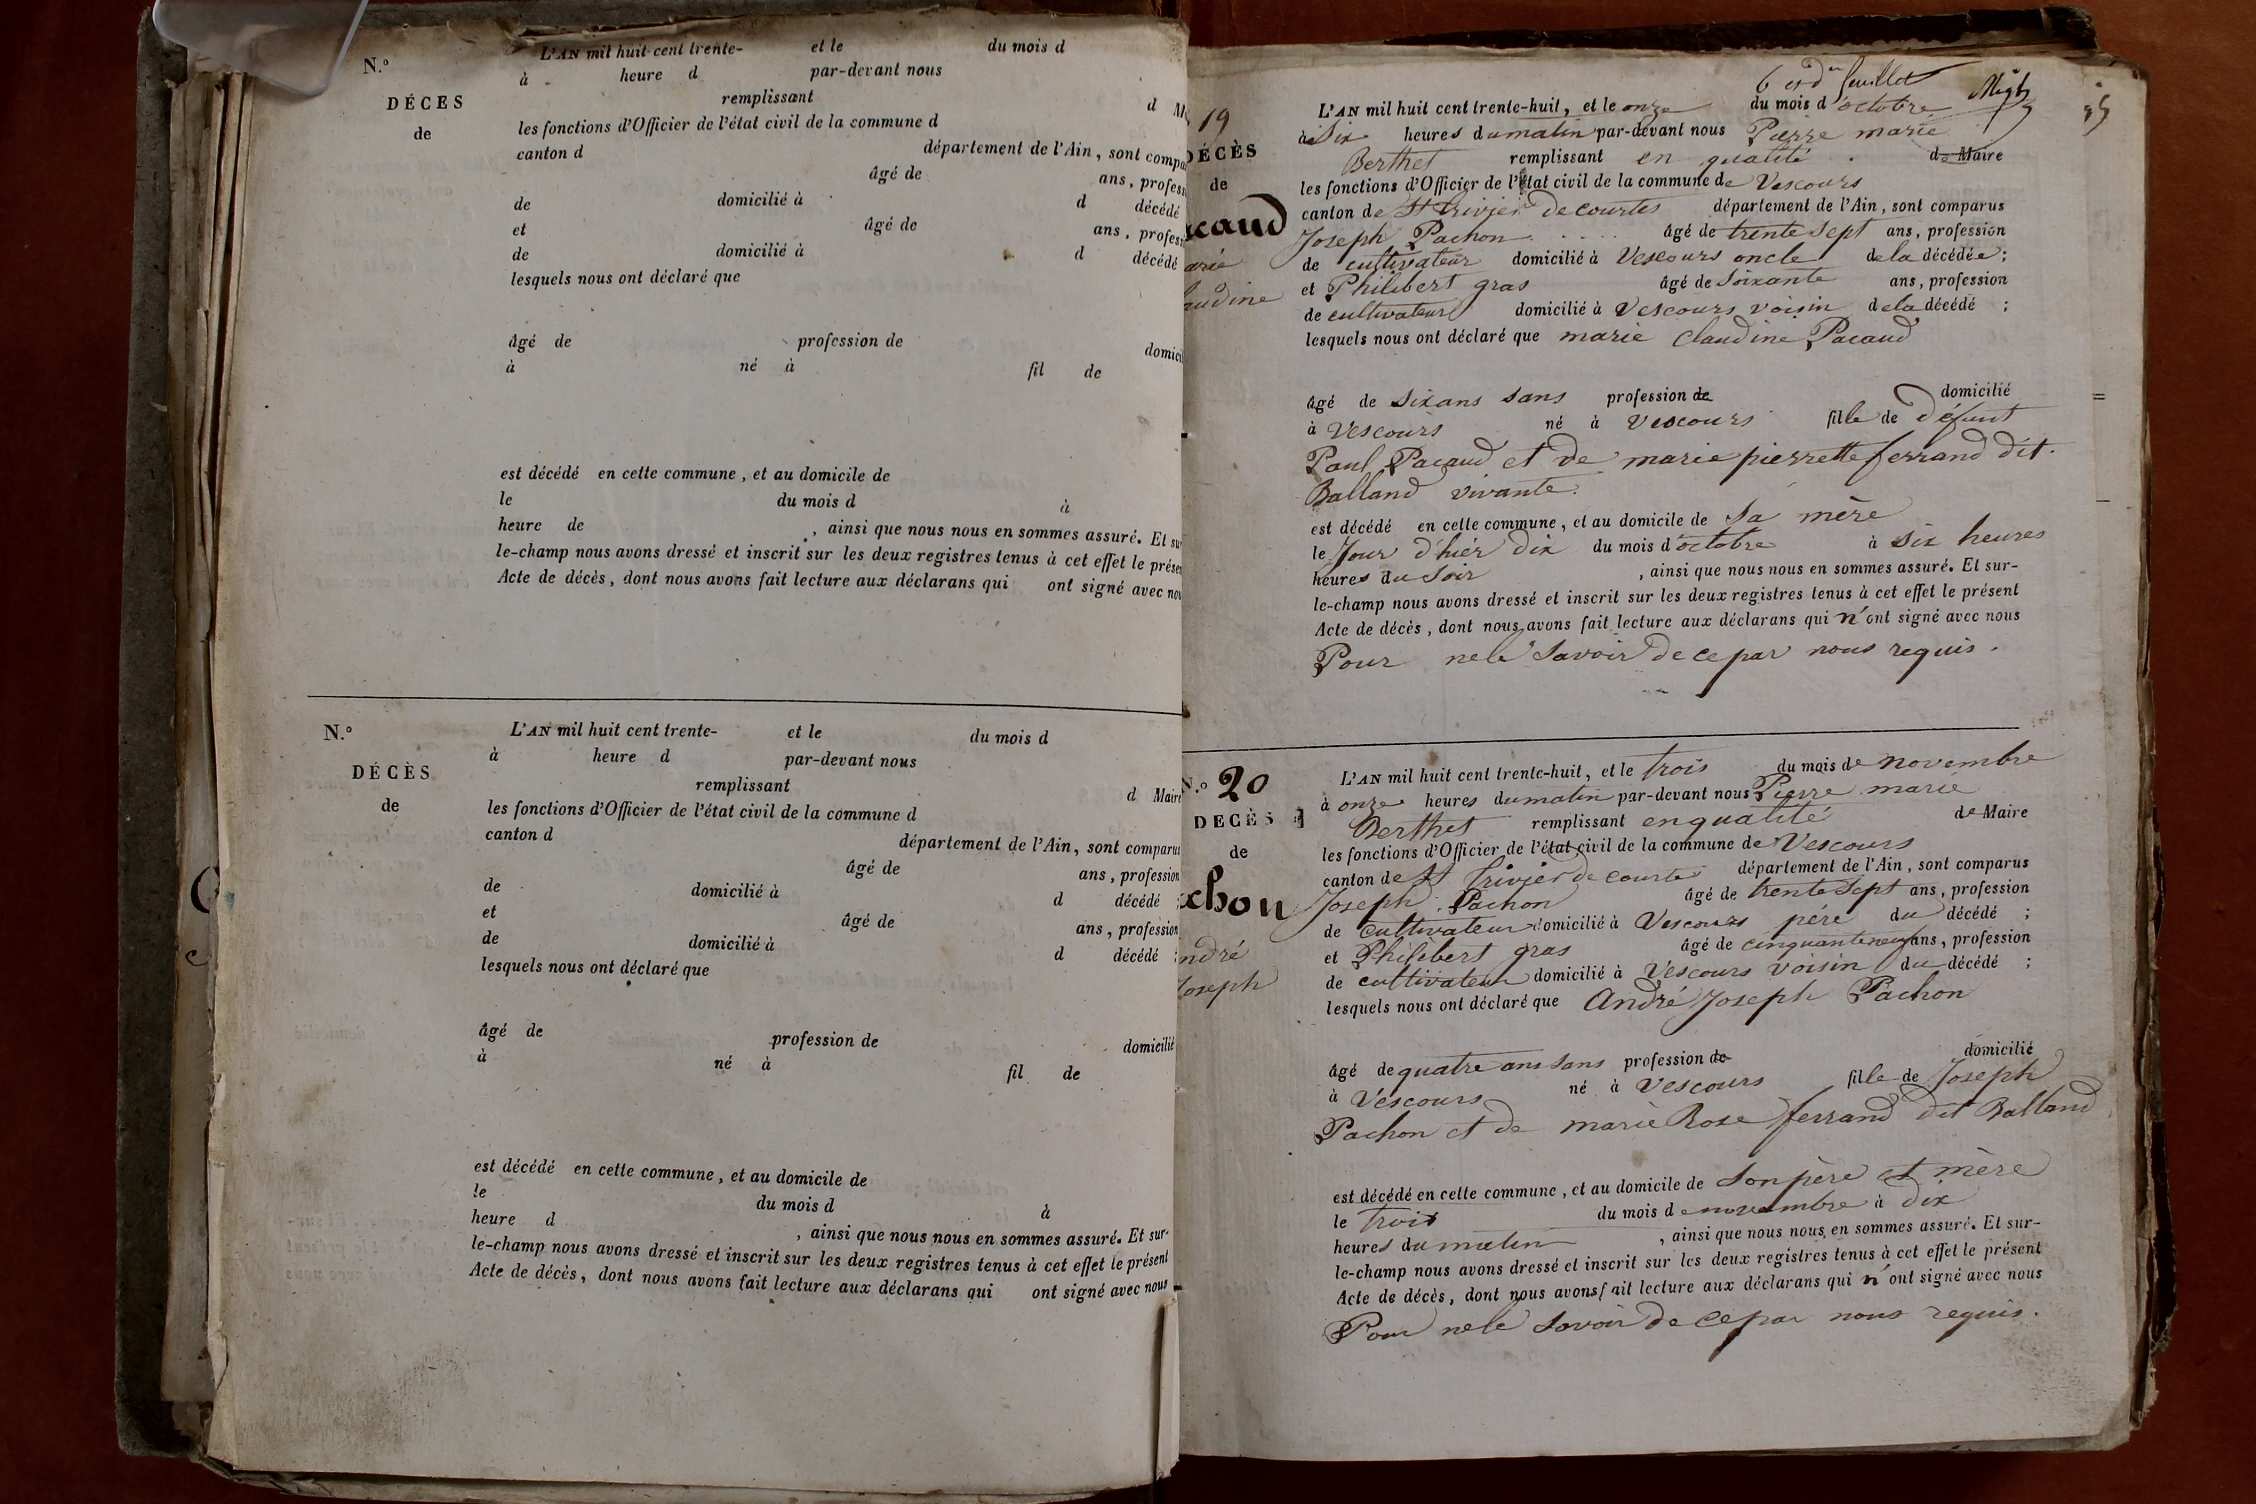 N.º
DÉCES
de
L'AN mil huit cent trente- et le du mois d
à heure d par-devant nous
remplissant d M
les fonctions d'Officier de l'état civil de la commune d
canton d département de l'Ain, sont compa
âgé de ans, profess
de domicilié à d décédé
et âgé de ans, profess
de domicilié à d décédé
lesquels nous ont déclaré que
âgé de profession de domici
à né à fil de
est décédé en cette commune, et au domicile de
le du mois d à
heure de , ainsi que nous nous en sommes assuré. Et su
le-champ nous avons dressé et inscrit sur les deux registres tenus à cet effet le prése
Acte de décès, dont nous avons fait lecture aux déclarans qui ont signé avec nou
N.º
DÉCÈS
de
L'AN mil huit cent trente- et le du mois d
à heure d par-devant nous
remplissant d Maire
les fonctions d'Officier de l'état civil de la commune d
canton d département de l'Ain, sont comparus
âgé de ans, profession
de domicilié à d décédé ;
et âgé de ans, profession
de domicilié à d décédé ;
lesquels nous ont déclaré que
âgé de profession de domicilié
à né à fil de
est décédé en cette commune, et au domicile de
le du mois d à
heure d , ainsi que nous nous en sommes assuré. Et sur-
le-champ nous avons dressé et inscrit sur les deux registres tenus à cet effet le présent
Acte de décès, dont nous avons fait lecture aux déclarans qui ont signé avec nous
feuillet
19
DÉCÈS
de
acaud
arie
audine
L'AN mil huit cent trente-huit, et le onze du mois d'octobre
à Six heures du matin par-devant nous Pierre marie
Berthet remplissant en qualité de Maire
les fonctions d'Officier de l'état civil de la commune de Vescours
canton de St trivier de courtes département de l'Ain, sont comparus
Joseph Pachon âgé de trente Sept ans, profession
de cultivateur domicilié à Vescours oncle de la décédée ;
et Philibert gras âgé de Soixante ans, profession
de cultivateur domicilié à Vescours voisin de la décédé ;
lesquels nous ont déclaré que marie claudine Pacaud
âgé de Six ans sans profession de domicilié
à Vescours né à Vescours fille de défunt
Paul Pacaud et de marie pierrette ferrand dit
Balland vivante.
est décédé en cette commune, et au domicile de Sa mère
le Jour d'hiér dix du mois d'octobre à Six heures
heures du Soir , ainsi que nous nous en sommes assuré. Et sur-
le-champ nous avons dressé et inscrit sur les deux registres tenus à cet effet le présent
Acte de décès, dont nous avons fait lecture aux déclarans qui n'ont signé avec nous
Pour ne le Savoir de ce par nous requis.
N.º 20
DECÈS
de
chon
ndré
Joseph
L'AN mil huit cent trente-huit, et le trois du mois de novembre
à onze heures du matin par-devant nous Pierre marie
Berthet remplissant en qualité de Maire
les fonctions d'Officier de l'état civil de la commune de Vescours
canton de St Trivier de courte département de l'Ain, sont comparus
Joseph Pachon âgé de trente Sept ans, profession
de cultivateur domicilié à Vescours père du décédé ;
et Philibert gras âgé de cinquante neuf ans, profession
de cultivateur domicilié à Vescours voisin du décédé ;
lesquels nous ont déclaré que André Joseph Pachon
âgé de quatre ans sans profession de domicilié
à Vescours né à Vescours fille de Joseph
Pachon et de marie Rose ferrand dit Balland
est décédé en cette commune, et au domicile de Son père et mère
le trois du mois de novembre à dix
heures du matin , ainsi que nous nous en sommes assuré. Et sur-
le-champ nous avons dressé et inscrit sur les deux registres tenus à cet effet le présent
Acte de décès, dont nous avons fait lecture aux déclarans qui n'ont signé avec nous
Pour ne le Savoir de ce par nous requis.